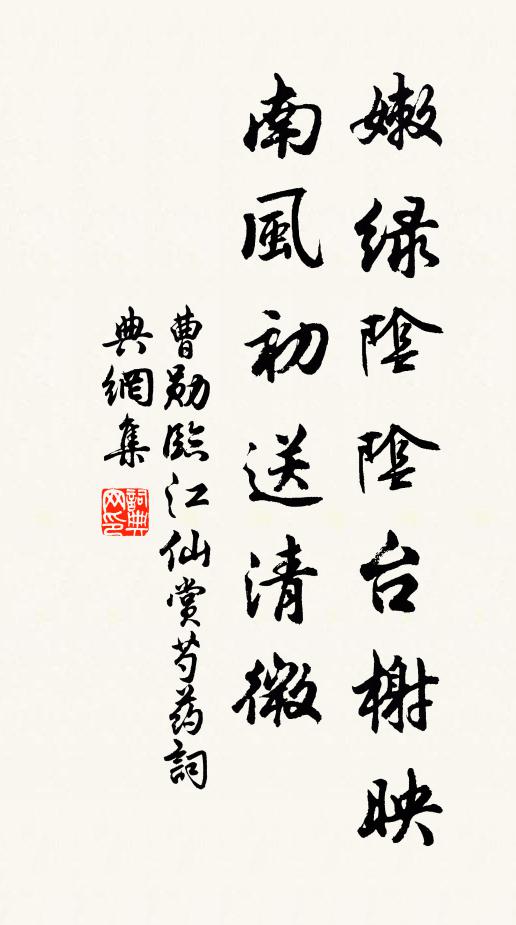 嫩绿陰陰台榭映
南風初送清微
曹勛臨江仙赏芍药詞
典網集
詞典网印